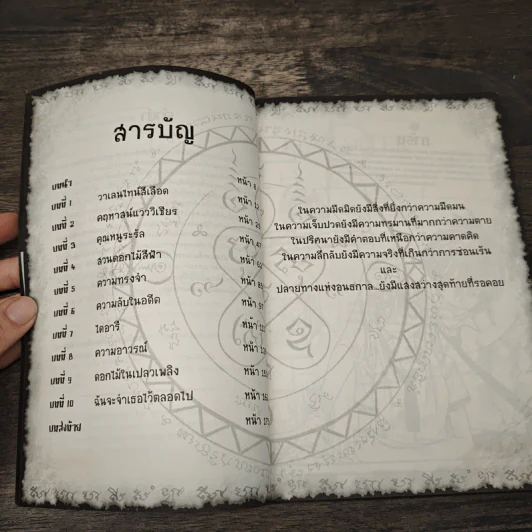 สารบัญ
บทนำ หน้า
บทที่ 1 วาเลนไทน์สีเลือด หน้า
บทที่ 2 คฤหาสน์แวววิเชียร หน้า
บทที่ 3 คุณหนูระรัล หน้า
บทที่ 4 สวนดอกไม้สีฟ้า หน้า
บทที่ 5 ความทรงจำ หน้า
บทที่ 6 ความลับในอดีต หน้า
บทที่ 7 ไดอารี่ หน้า
บทที่ 8 ความอาวรณ์ หน้า
บทที่ 9 ดอกไม้ในเปลวเพลิง หน้า
บทที่ 10 ฉันจะจำเธอไว้ตลอดไป หน้า
บทส่งท้าย หน้า
ในความมืดมิดยังมีสิ่งที่ยิ่งกว่าความมืดมน
ในความเจ็บปวดยังมีความทรมานที่มากกว่าความตาย
ในปริศนายังมีคำตอบที่เหนือกว่าความคาดคิด
ในความลึกลับยังมีความจริงที่เกินกว่าการซ่อนเร้น
และ
ปลายทางแห่งอนธกาล...ยังมีแสงสว่างสุดท้ายที่รอคอย